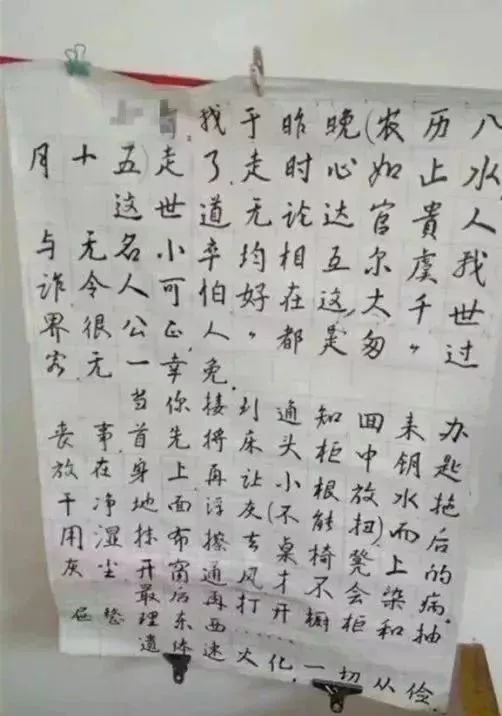 有.我于昨晚(农历八
月十五)走了.走时心如止水.
这世道无论达官贵人
与无名小卒均相互尔虞我
诈令人可怕好在这大千世
界很公正,人〃都是匆〃过
客无一幸免.
当你接到通知来办
丧事首先将床头柜中钥匙
放在身上再让小根放水拖
干净地面浮灰(不能扭)而后
用湿抹布擦去桌椅凳上的
灰尘开窗通风才不会染病.
最后再打开橱柜和抽
屉整理东西……
遗体速火化,一切从俭.